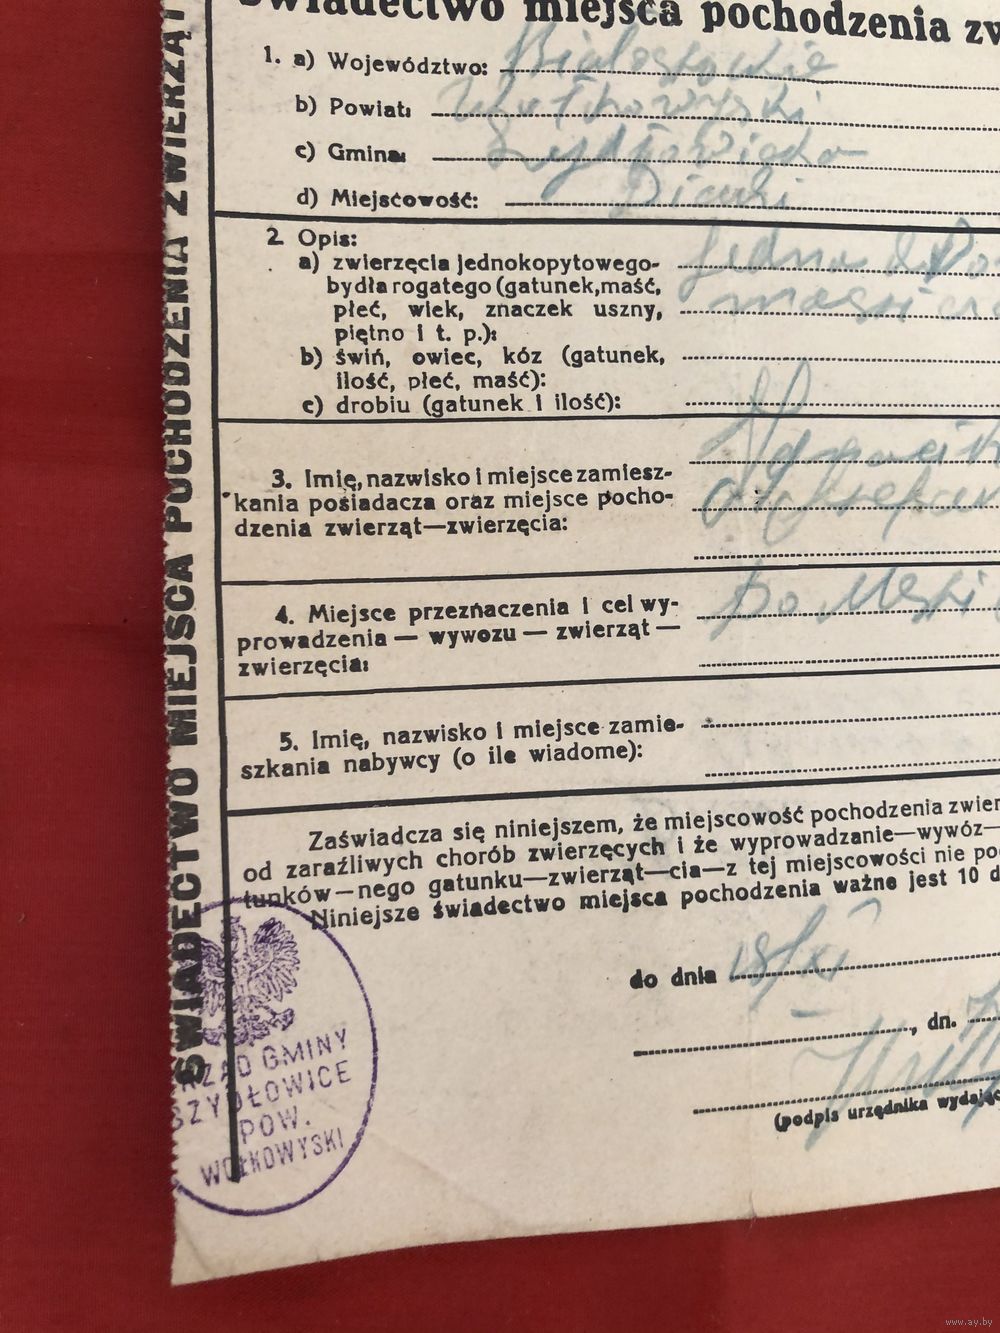 SWIADECTWO MIEJSCA POCHODZENIA ZWIERZĄT
Świadectwo miejsca pochodzenia zw
1. a) Województwo: Białostockie
b) Powiat: Wołkowyski
c) Gmina:
d) Miejscowość:
2 Opis:
a) zwierzęcia jednokopytowego- Jedna
bydła rogatego (gatunek, maść,
płeć, wiek, znaczek uszny,
piętno i t. p.):
b) świń, owiec, kóz (gatunek,
ilość, płeć, maść):
c) drobiu (gatunek i ilość):
3. Imię, nazwisko i miejsce zamiesz-
kania posiadacza oraz miejsce pocho-
dzenia zwierząt—zwierzęcia:
4. Miejsce przeznaczenia i cel wy-
prowadzenia — wywozu — zwierząt —
zwierzęcia:
5. Imię, nazwisko i miejsce zamie-
szkania nabywcy (o ile wiadome):
Zaświadcza się niniejszem, że miejscowość pochodzenia zwier
od zaraźliwych chorób zwierzęcych i że wyprowadzanie—wywóz—
tunków—nego gatunku—zwierząt—cia—z tej miejscowości nie po
Niniejsze świadectwo miejsca pochodzenia ważne jest 10 d
do dnia
, dn.
(podpis urzędnika wydając
RZĄD GMINY
SZYDŁOWICE
POW.
WOŁKOWYSKI
www.ay.by